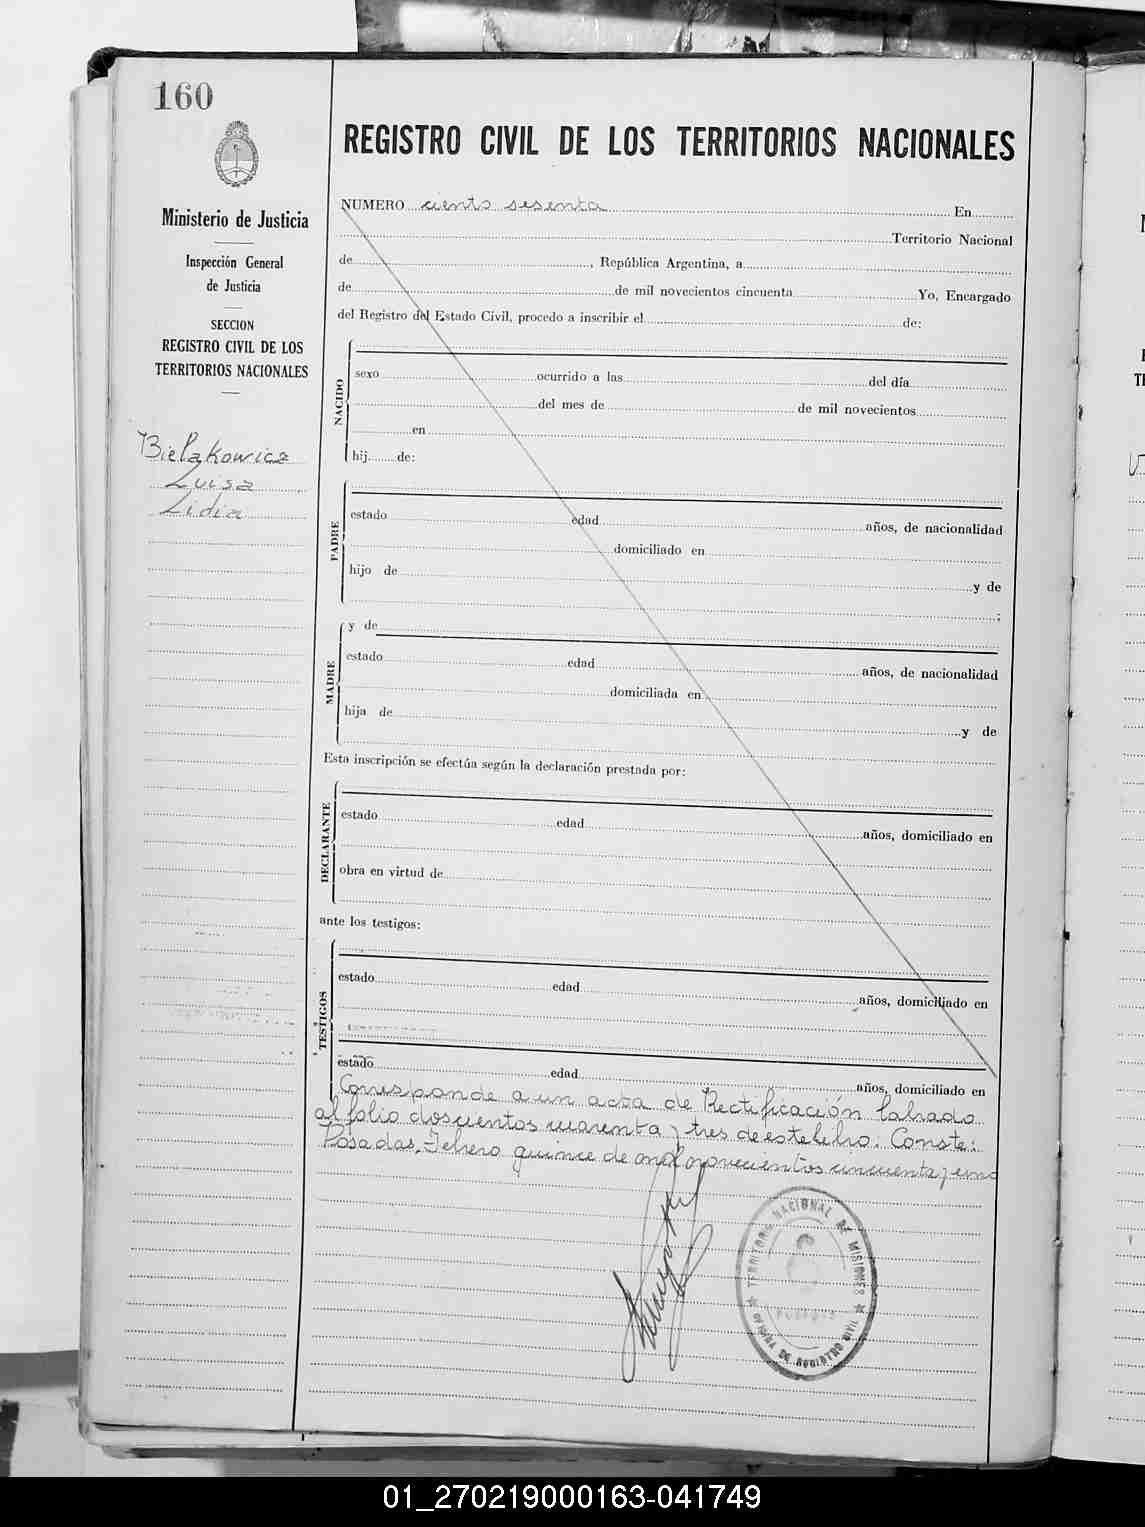 160
REGISTRO CIVIL DE LOS TERRITORIOS NACIONALES
Ministerio de Justicia
Inspección General
de Justicia
SECCION
REGISTRO CIVIL DE LOS
TERRITORIOS NACIONALES
Bielakowicz
Luisa
Lidia
NUMERO ciento sesenta En
Territorio Nacional
de , República Argentina, a
de de mil novecientos cincuenta Yo, Encargado
del Registro del Estado Civil, procedo a inscribir el de:
NACIDO
sexo ocurrido a las del día
del mes de de mil novecientos
en
hij de:
PADRE
estado edad años, de nacionalidad
domiciliado en
hijo de y de
;
MADRE
y de
estado edad años, de nacionalidad
domiciliada en
hija de y de
Esta inscripción se efectúa según la declaración prestada por:
DECLARANTE
estado edad años, domiciliado en
obra en virtud de
ante los testigos:
TESTIGOS
estado edad años, domiciliado en
estado edad años, domiciliado en
Corresponde a un acta de Rectificación labrado
al folio doscientos cuarenta y tres de este libro. Conste:
Posadas, Febrero quince de mil novecientos cincuenta y uno
TERRITORIO NACIONAL DE MISIONES
POSADAS
OFICINA DE REGISTRO CIVIL
01_270219000163-041749